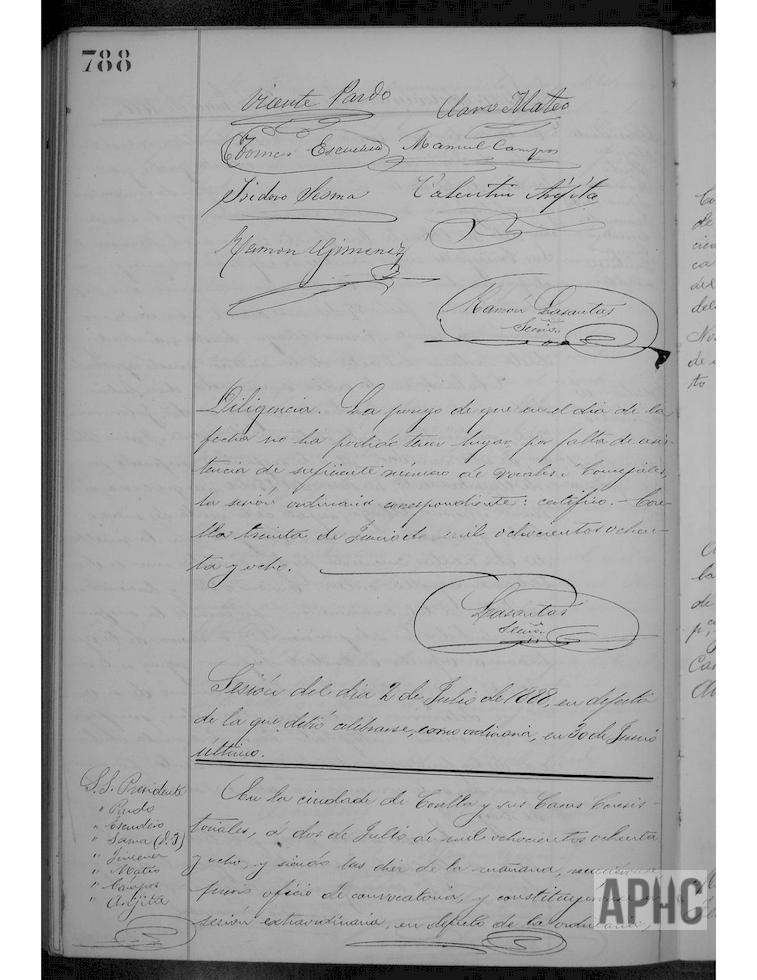 788
Vicente Pardo
Claro Mateo
Tomás Escudero
Manuel Campos
Isidoro Sesma
Valentin Argita
Ramon Gimenez
Ramón Lasantas
Secrio.
Diligencia. La pongo de que en el día de la
fecha no ha podido tener lugar, por falta de asis-
tencia de suficiente número de vocales Concejales,
la sesión ordinaria correspondiente: certifico. - Core-
lla treinta de Junio de mil ochocientos ochen-
ta y ocho.
Lasantas
Secrio.
Sesión del dia 2 de Julio de 1888, en defecto
de la que debió celebrarse, como ordinaria, en 30 de Junio
último.
S.S. Presidente
" Pardo
" Escudero
" Sesma (D. I)
" Jimenez
" Mateo
" Campos
" Argita
En la ciudad de Corella y sus Casas Consis-
toriales, á dos de Julio de mil ochocientos ochenta
y ocho, y siendo las diez de la mañana,
previo oficio de convocatoria, y
sesión extraordinaria, en defecto de la ordinaria,
APHC